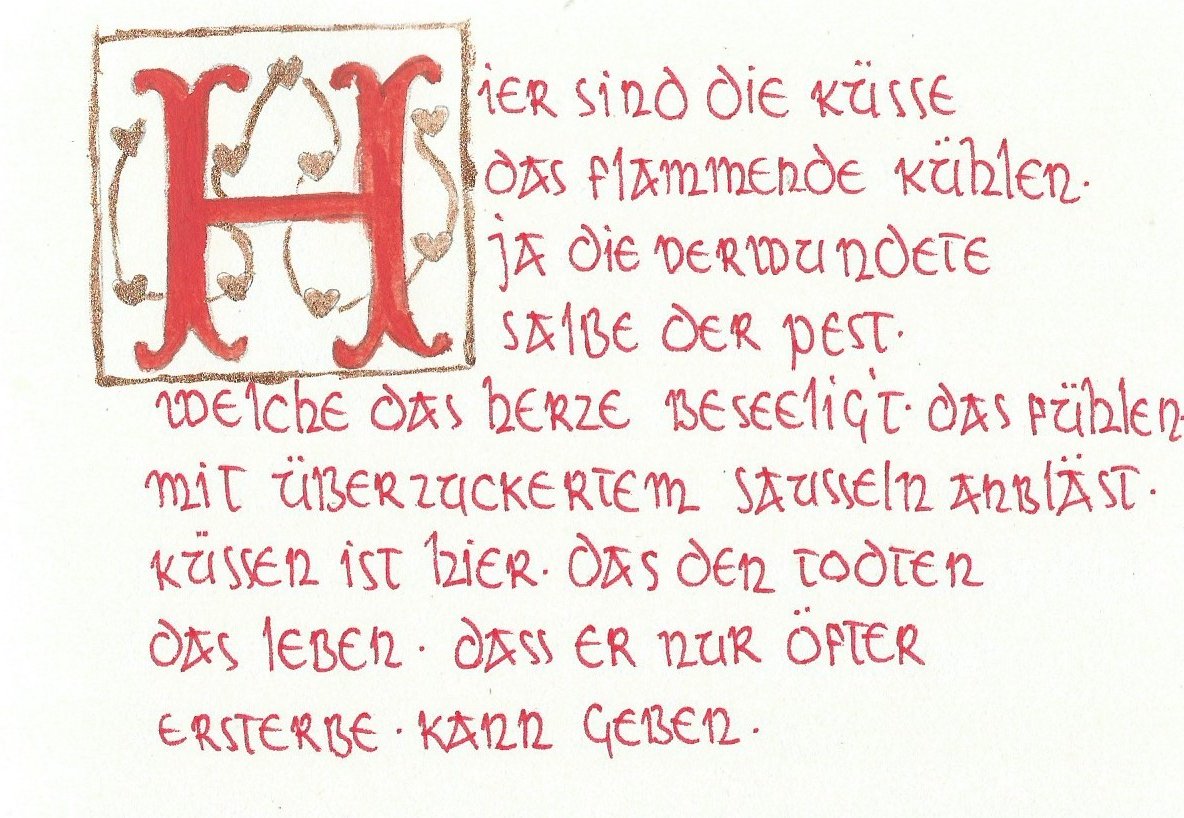 Hier sind die küsse
das flammende kühlen.
ja die verwundete
salbe der pest.
welche das herze beseeligt. das fühlen
mit überzuckertem sausseln anbläst.
küssen ist hier. das den todten
das leben. dass er nur öfter
ersterbe. kann geben.